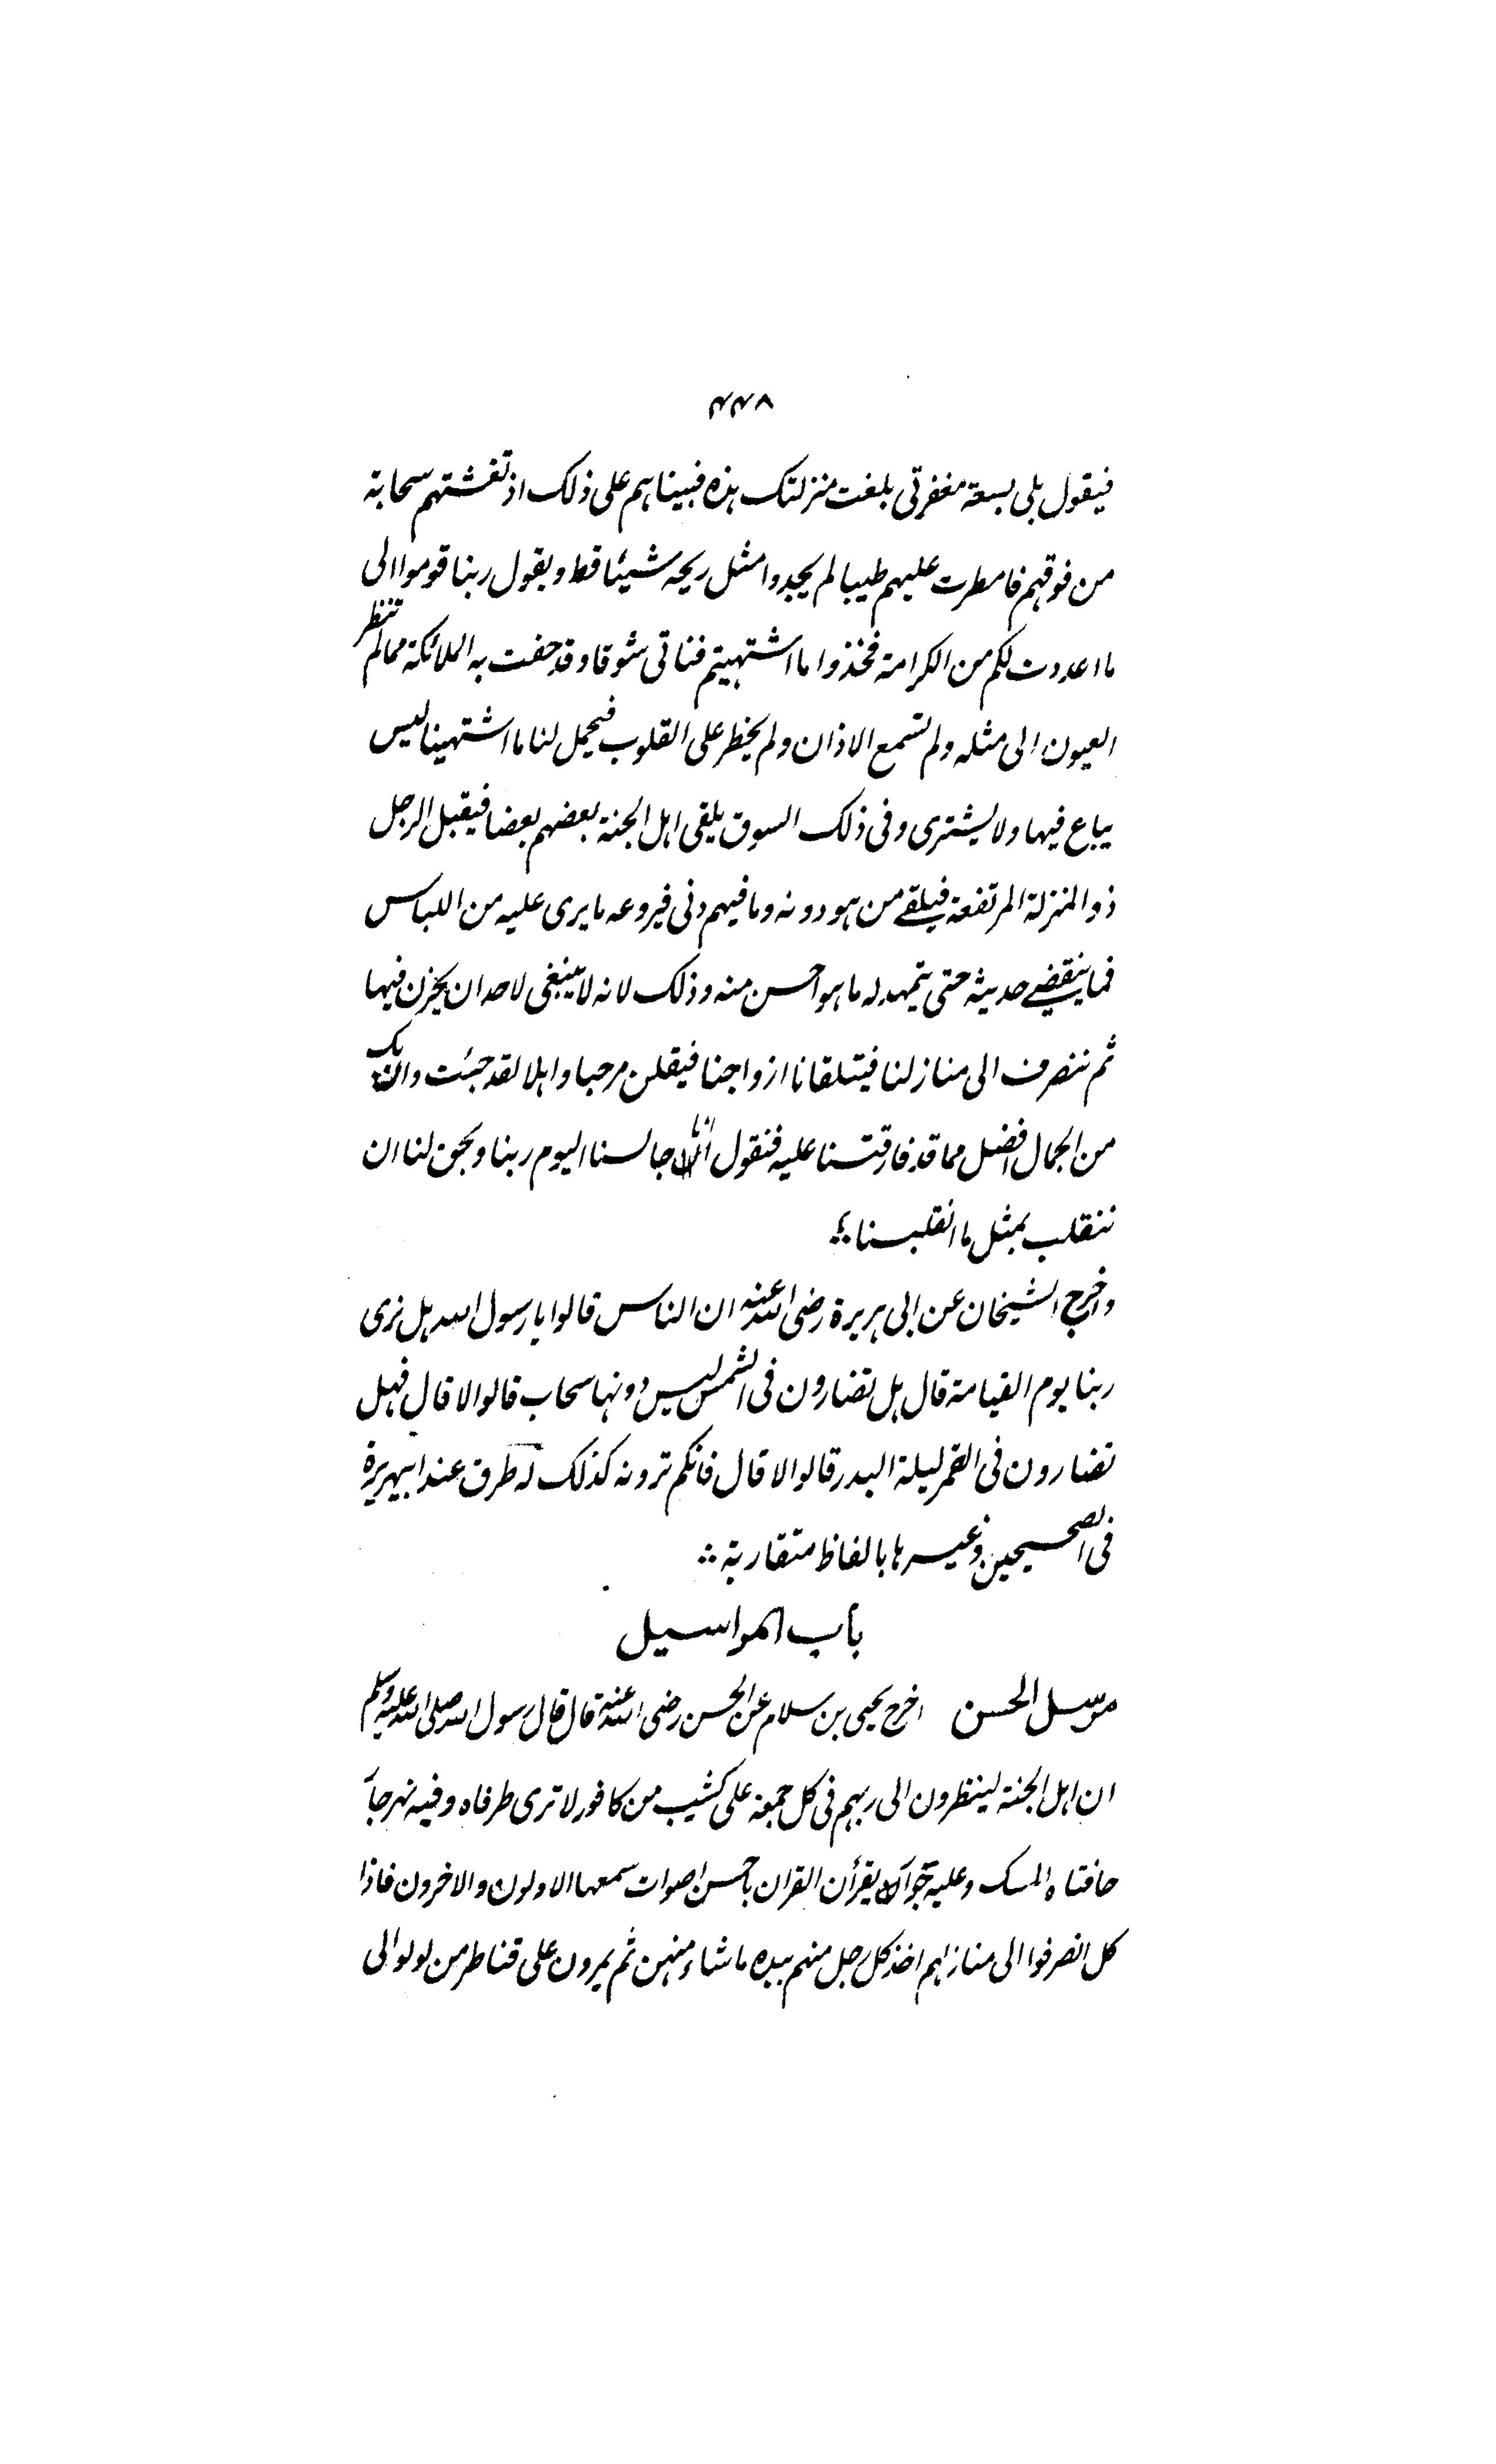 ۴۴۸
فیقول بلی بسعة مغفرتی بلغت منزلتک ہذہ فبیناہم علی ذلک اذ تغشتہم سحابة
من فوقہم فامطرت علیہم طیبا لم یجدوا مثل ریحہ شیئا قط ویقول ربنا قوموا الی
ما اعددت لکم من الکرامة فخذوا ما اشتہیتم فناتی سوقا وقد حفت بہ الملائکة مما لم تنظر
العیون الی مثلہ ولم تسمع الاذان ولم یخطر علی القلوب فیحمل لنا ما اشتہینا لیس
یباع فیہا ولا یشتری وفی ذلک السوق یلقی اہل الجنة بعضہم بعضا فیقبل الرجل
ذو المنزلة المرتفعة فیلقے من ہو دونہ وما فیہم دنی فیروعہ ما یری علیہ من اللباس
فما ینقضے حدیثہ حتی یتمہد لہ ما ہو احسن منہ وذلک لانہ لا ینبغی لاحد ان یحزن فیہا
ثم ننصرف الی منازلنا فیتلقانا ازواجنا فیقلن مرحبا واہلا لقد جئت وان بک
من الجمال افضل مما قد فارقتنا علیہ فنقول انا جالسنا الیوم ربنا ویحق لنا ان
ننقلب بمثل ما انقلبنا ؞
واخرج الشیخان عن ابی ہریرة رضی اللہ عنہ ان الناس قالوا یا رسول اللہ ہل نری
ربنا یوم القیامة قال ہل تضارون فی الشمس لیس دونہا سحاب قالوا لا قال فہل
تضارون فی القمر لیلة البدر قالوا لا قال فانکم ترونہ کذلک لہ طرق عند ابیہریرة
فی الصحیحین وغیرہا بالفاظ متقاربة ؞
باب المراسیل
مرسل الحسن اخرج یحیی بن سلام عن الحسن رضی اللہ عنہ قال قال رسول اللہ صلی اللہ علیہ وسلم
ان اہل الجنة لینظرون الی ربہم فی کل جمعة علی کثیب من کافور لا تری طرفاہ وفیہ نہر جار
حافتاہ المسک وعلیہ جوار یقرأن القران باحسن اصوات سمعہا الاولون والاخرون فاذا
کل انصرفوا الی منازلہم اخذ کل رجل منہم بیدہ ما شاء منہن ثم یمرون علی قناطر من لولو الی